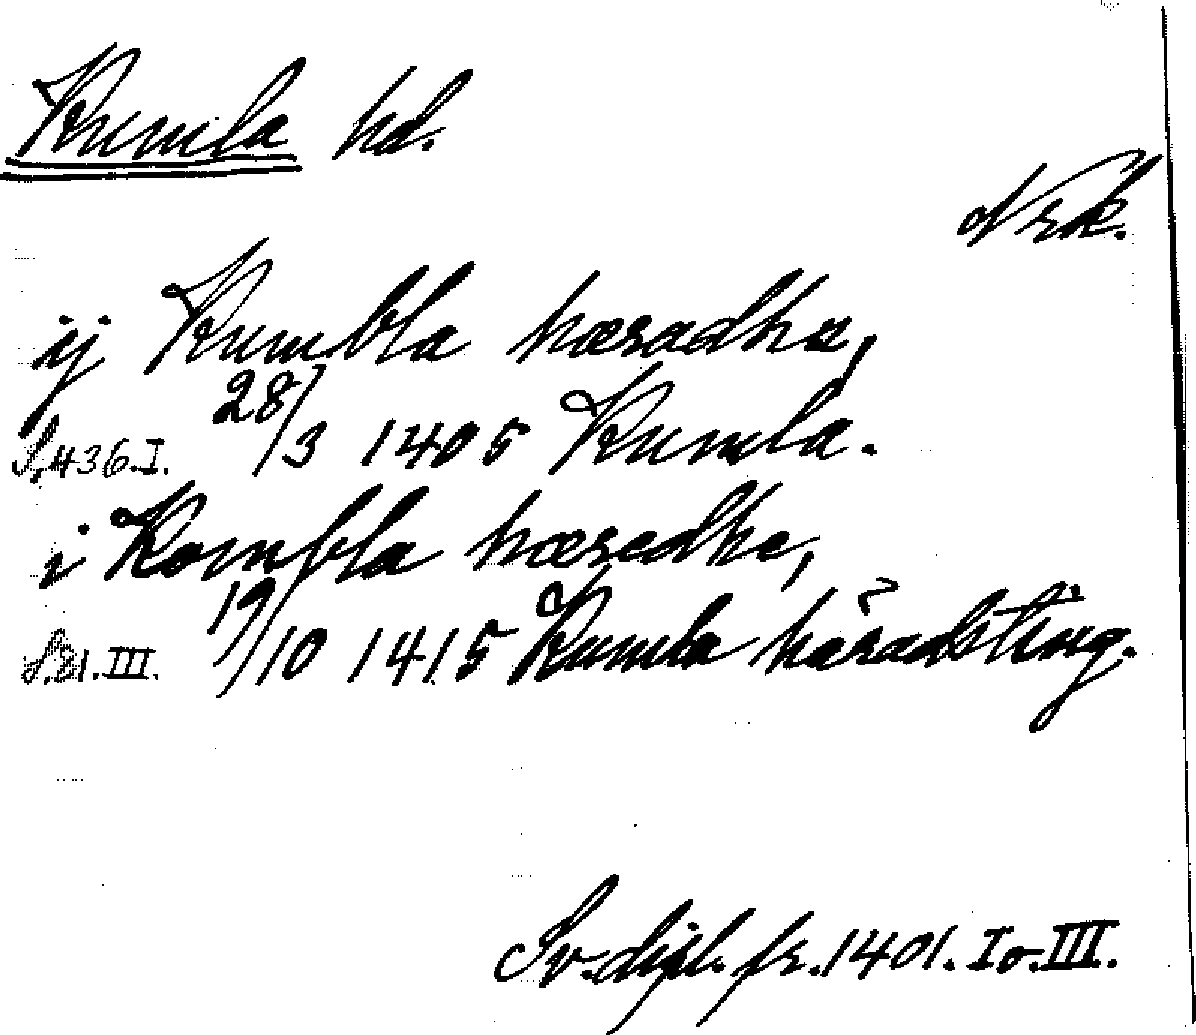 Kumla hd.
Nrk.
ij Kumbla hæradhe,
S. 436. I. 28/3 1405 Kumla.
i Kombla hæredhe,
S. 21. III. 19/10 1415 Kumla häradsting.
Sv. dipl. fr. 1401. I o. III.